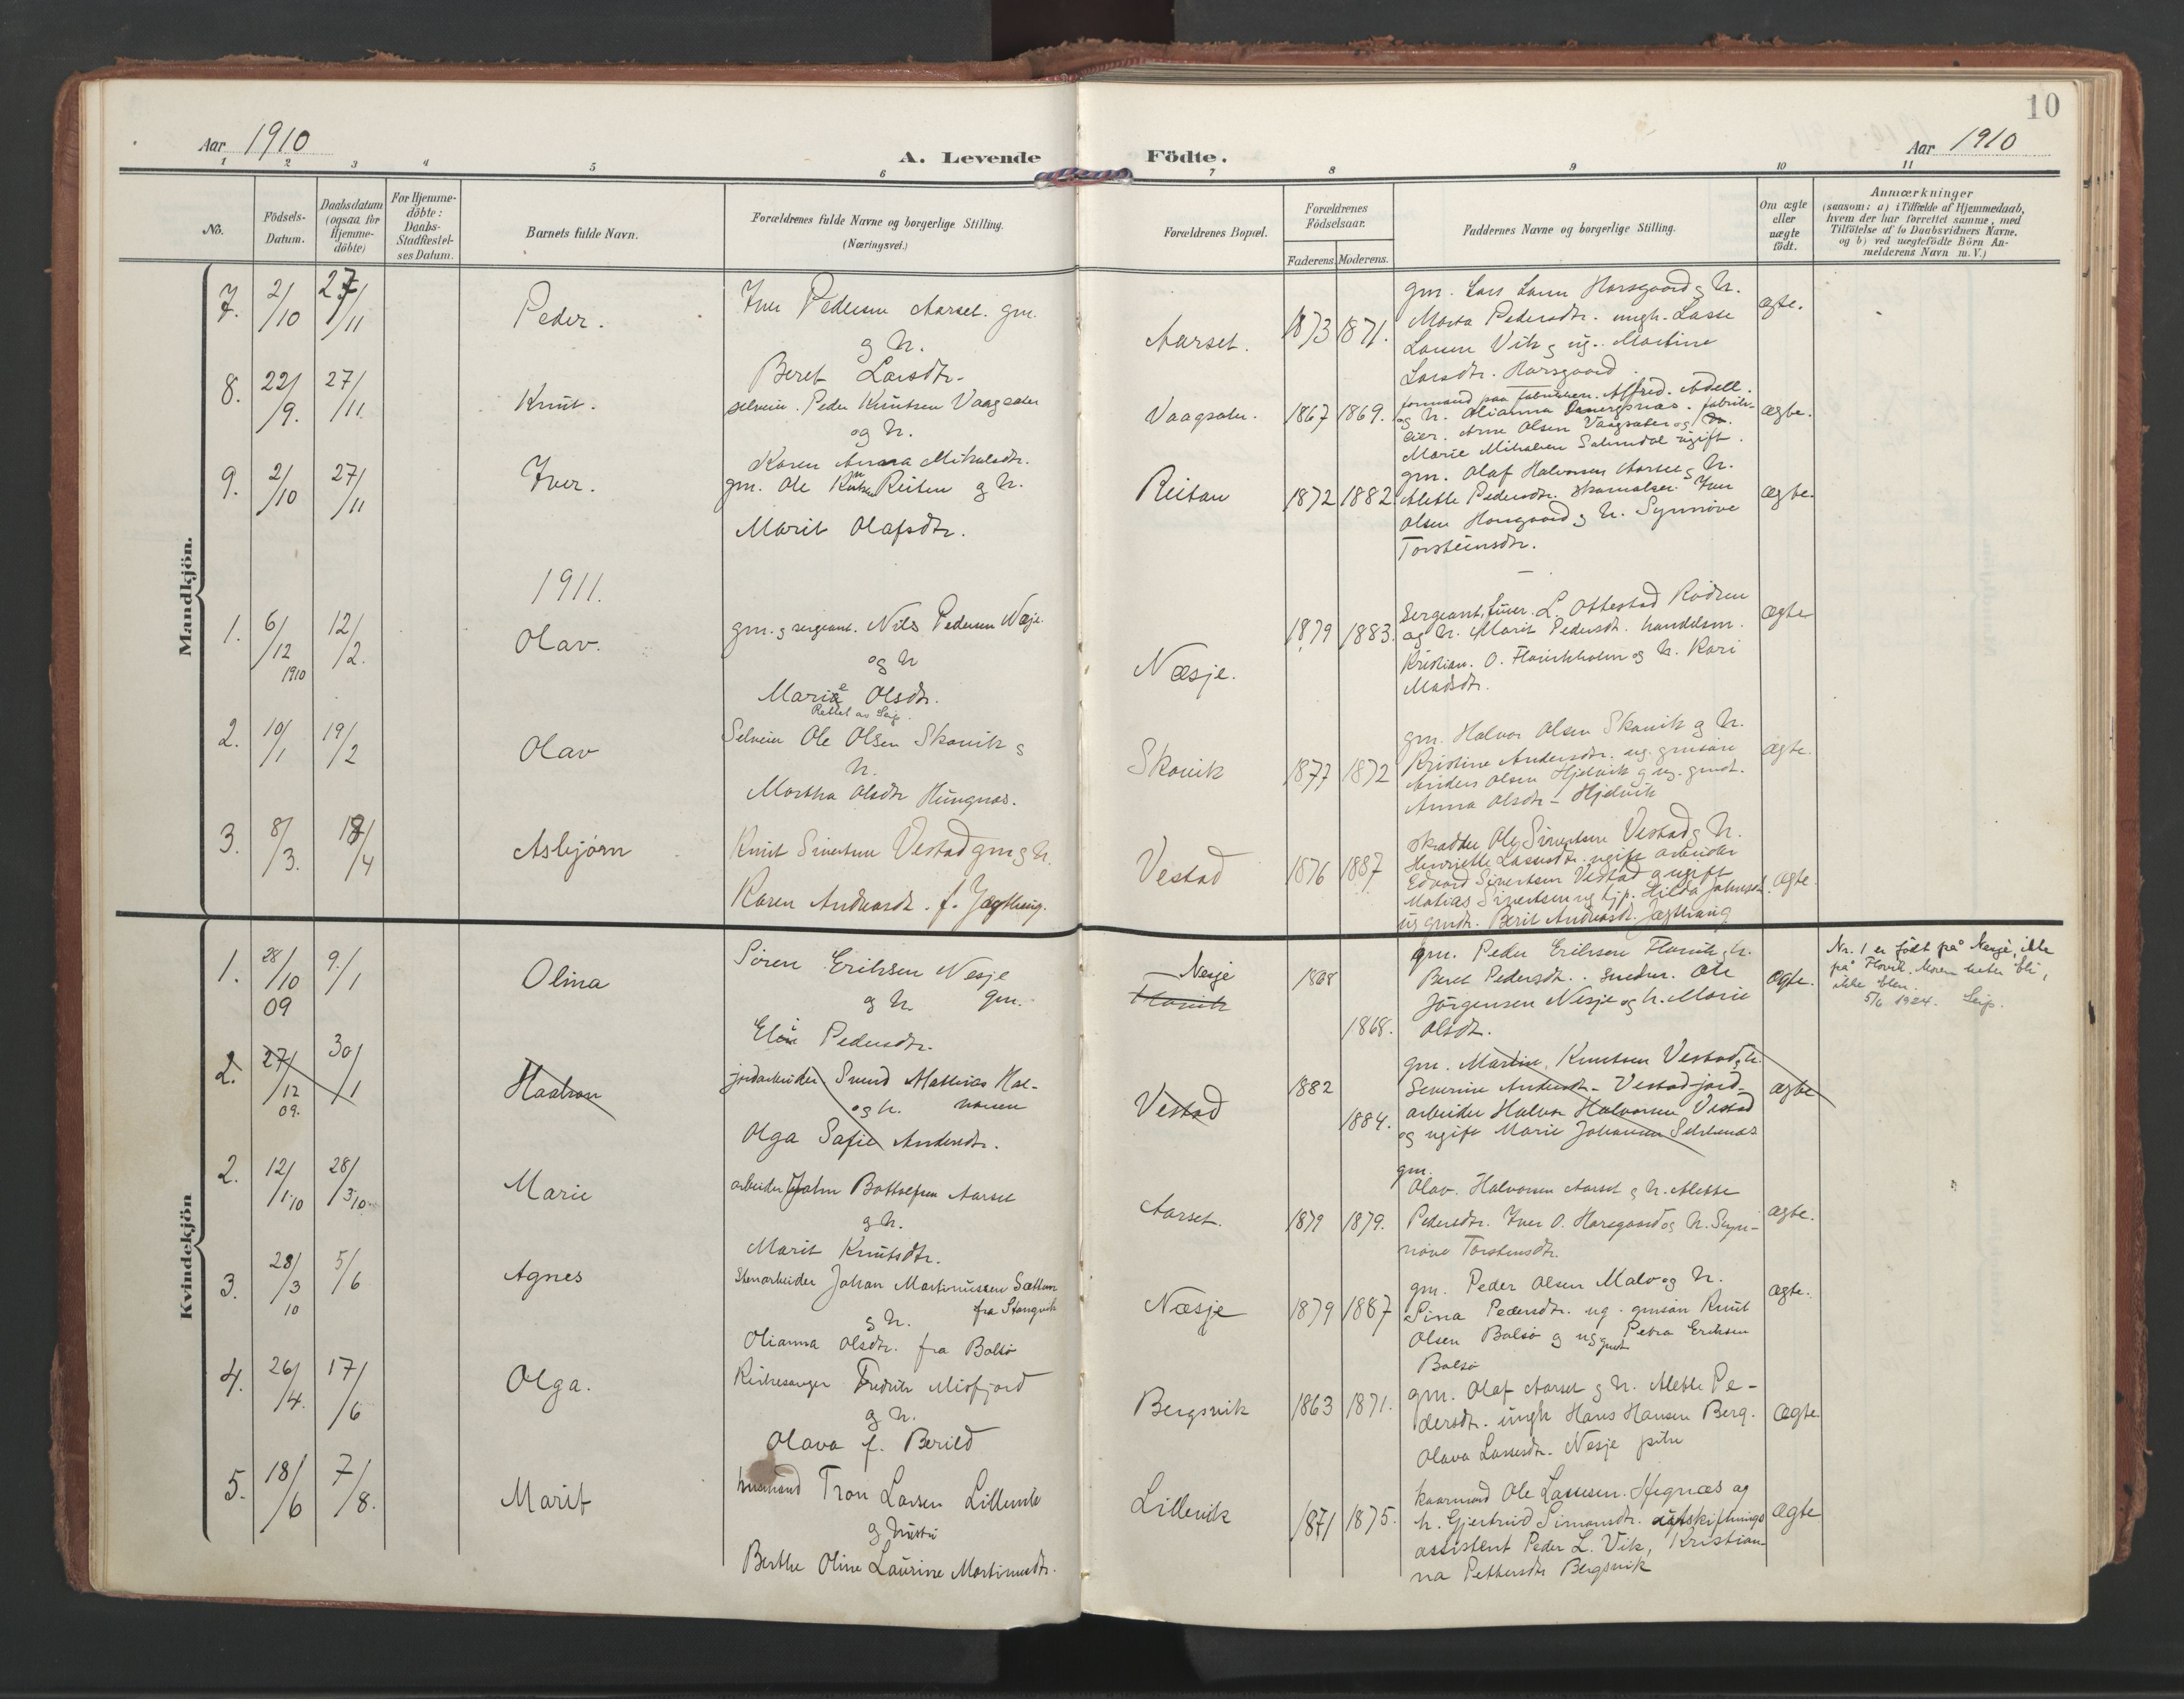 10
Aar 1910
A. Levende Födte.
Aar 1910
1 2 3 4 5 6 7 8 9 10 11
No.
Födsels-Datum.
Daabsdatum (ogsaa for Hjemme-döbte)
For Hjemme-döbte: Daabs-Stadfæstel-ses Datum.
Barnets fulde Navn.
Forældrenes fulde Navne og borgerlige Stilling.
(Næringsvei.)
Forældrenes Bopæl.
Forældrenes Födselsaar.
Faderens. Moderens.
Faddernes Navne og borgerlige Stilling.
Om ægte eller uægte födt.
Anmærkninger
(saasom: a) i Tilfælde af Hjemmedaab,
hvem der har forrettet samme, med
Tilföielse af to Daabsvidners Navne,
og b) ved uægtefödte Börn An-
melderens Navn m. V.)
Mandkjön.
7. 2/10 27/11 Peder.
Iver Pedersen Aarset. gm.
g h.
Beret Larsdtr.
Aarset. 1873 1871.
gm. Lars Larsen Harsgaard g h.
Marta Pedersdtr. ungk. Lasse
Larsen Vik g ug. Martine
Larsdtr. Harsgaard
ægte.
8. 22/9. 27/11. Knut.
selveier. Peder Knutsen Vaagsæter
og h.
Karen Anna Mikalsdtr.
Vaagsæter. 1867 1869.
formand paa fabrikken. Alfred. Adell.
og h. Olianna . fabrik-
eier. Arne Olsen Vaagsæter og
Marie Mikalsen Sølsndal ugift.
ægte.
9. 2/10 27/11 Iver.
gm. Ole Knutsen Reiten g h.
Marit Olafsdtr.
Reitan 1872 1882.
gm. Olaf Halvorsen Aarset g h.
Mette Pedersdtr. Iver
Olsen Horsgaard g h. Synnöve
Torsteinsdtr.
ægte.
1911.
1. 6/12 1910 12/2. Olav.
gm. g sergeant. Nils Pedersen Næsje.
og h
Marie Olsdtr.
Rettet av Seip.
Næsje. 1879 1883.
Sergeant, L. Ottestad Rödven
og h. Marit Pedersdtr. handelsm.
Kristian. O. Flovikholm og h. Kari
Madsdtr.
ægte
2. 10/1 19/2 Olav
Selveier Ole Olsen Skovik g
h.
Martha Olsdtr Hungnes.
Skovik 1877 1872
gm. Halvor Olsen Skovik g h.
Kristine Andersdtr. ug. gmsön
Anders Olsen Hjelvik g ug. gmdt.
Anna Olsdtr - Hjelvik
ægte.
3. 8/3. 18/4 Asbjörn
Knut Sivertsen Vestad gm g h.
Karen Andreasdt. f. Jægtheug.
Vestad 1876 1887
skrædder Ole Sivertsen Vestad g h.
Henriette Lassesdtr. ugift arbeider
Edvard Sivertsen Vestad g ugift
Matias Sivertsen ug tjp. Hilda Johnsdt.
ug gmdt. Berit Andreasdt. Jægthaug
ægte.
Kvindekjön
1. 28/10 09 9./1 Olina
Sören Eriksen Nesje
g h. gm.
Eli Pedersdtr.
Nesje
Flovik
1868 1868.
gm. Peder Eriksen Flovik g h.
Beret Pedersdt. . smedm. Ole
Jörgensen Nesje og h. Marie
Olsdt.
ægte.
Nr. 1 er födt på Nesje, ikke
på Flovik. Moren heter Eli,
ikke Elen.
5/6 1924. Seip.
2. 27/12 09. 30/1 Haakon
jordarbeider Svend Mathias Hal-
og h. vorsen
Olga Safie Andersdtr.
Vestad 1882 1884.
gm. Martin. Knutsen Vestad g h.
Severine Andersdt - Vestad jord-
arbeider Halvor Halvorsen Vestad
og ugift Marie Johansen Selsbenes
ægte
2. 12/1 10 28/3 10 Marie
arbeider John Bottolfsen Aarset
g h.
Marit Knutsdtr.
Aarset. 1879 1879.
gm.
Olav. Halvorsen Aarset g h. Mette
Pedersdtr. Iver O. Horsgaard og h. Syn-
növe Torsteinsdtr.
ægte.
3. 28/3 10 5/6 Agnes
Stenarbeider Johan Martinussen Sættem
g h. fra Stangvik
Olianna Olsdtr. fra Bolsö
Næsje 1879 1887
gm. Peder Olsen Malo og h.
Sina Pedersdtr. ug. gmsön Knut
Olsen Bolsö g ug gmdt Petra Eriksen
Bolsö
ægte.
4. 26/4. 17/6 Olga.
Kirkesanger Fredrik Misfjord
g h.
Olava f. Berild
Bergsvik 1863 1871.
gm. Olaf Aarset g h. Mette Pe-
dersdtr. ungk Hans Hansen Berg.
Olava Lassesdtr. Nesje pike
ægte.
5. 18/6 7/8. Marit
husmand Tron Larsen Lillevik
g hustru
Berthe Oline Laurine Martinusdtr.
Lillevik 1871 1875.
kaarmand Ole Lassesen. Hegnæs og
h. Gjertrud Simonsdtr. utskiftnings
assistent Peder L. Vik, Kristian-
na Pettersdtr Bergsvik
ægte